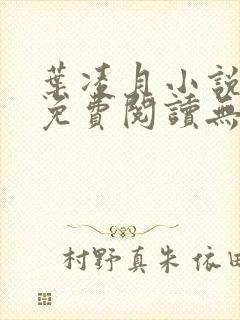 葉凌月小說
免費閱讀無
村野真朱 依田